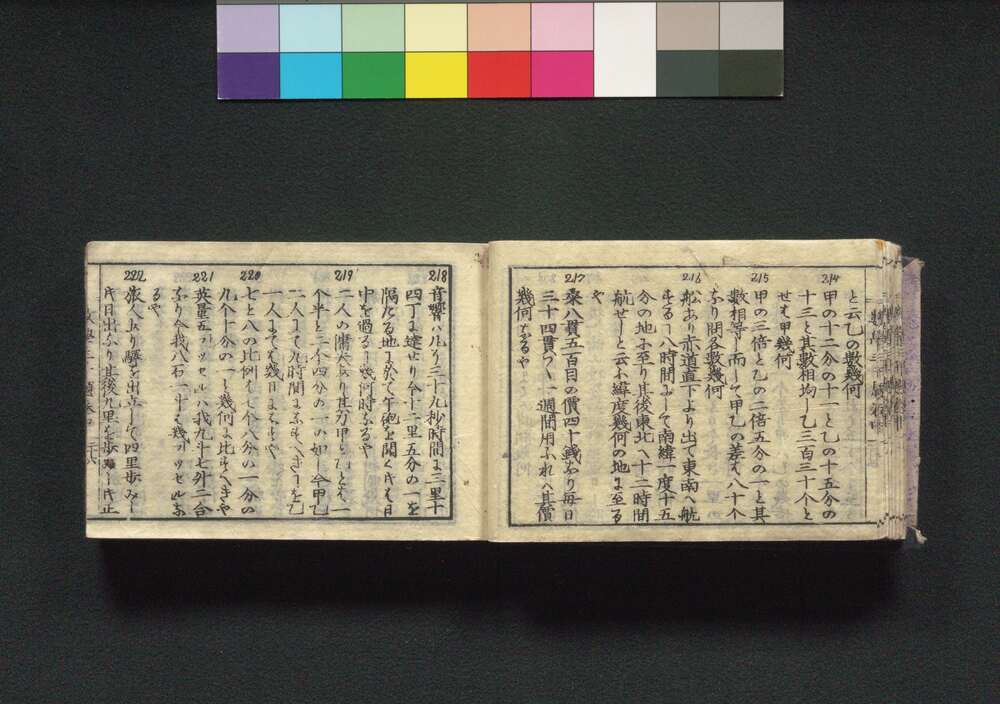 と云乙の數幾何
214
甲の十二分の十一と乙の十五分の
十三と其數相均し乙三百三十个と
せば甲幾何
215
甲の三倍と乙の二倍五分の一と其
數相等し而して甲乙の差は八十个
なり問各數幾何
216
船あり赤道直下より出て東南へ航
する八時間にして南緯一度十五
分の地に至り其後東北へ十二時間
航せしと云ふ緯度幾何の地に至る
や
217
米八貫五百目の價四十錢あり毎日
三十四貫づゝ一週間用ふれば其價
幾何なるや
218
音響ハ凡そ三十九秒時間に三里十
四丁に達せり今十二里五分の一を
隔たる地に於て午砲を聞く時は日
中を過る幾何時なるや
219
二人の
个半と二个四分の一の如し今甲乙
二人にて九時間になすべきを乙
一人にては幾日になすや
220
七と八の比例は七个八分の一分の
九个十分の一と幾何に比すべきや
221
英量五ブッセルハ我九斗七升二合
なり今我八石一斗は幾ブッセルな
るや
222
旅人あり驛を出立して四里歩みし
時日出なり其後九里を歩みし時正